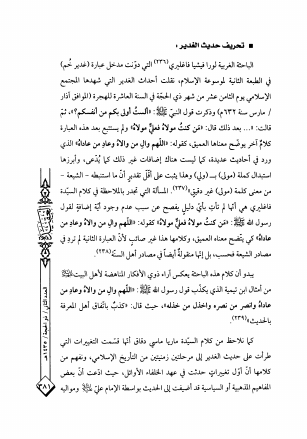 ■ تحريف حديث الغدير :
الباحثة الغربية لورا فيشيا فاغليري (٢٣٦) التي دوّنت مدخل عبارة (غدير خُم)
في الطبعة الثانية لموسوعة الإسلام، نقلت أحداث الغدير التي شهدها المجتمع
الإسلامي يوم الثامن عشر من شهر ذي الحجّة في السنة العاشرة للهجرة (الموافق آذار
/ مارس سنة ٦٣٢م) وذكرت قول النبيّ ﷺ: «ألستُ أولى بكم من أنفسكم؟»، ثمّ
قالت: «... بعد ذلك قال: «مَن كنتُ مولاهُ فعليٌّ مولاهُ» ولم يستتبع بعد هذه العبارة
كلامٌ آخر يوضّح معناها العميق، كقوله: «اللّهم والِ من والاهُ وعادِ من عاداهُ» الذي
ورد في أحاديث عديدة، كما ليست هناك إضافات غير ذلك كما يُدّعى، وأبرزها
استبدال كملة (مولى) بـ (ولي) وهذا يثبت على أقلّ تقديرٍ أنّ ما استنبطه - الشيعة -
من معنى كلمة (مولى) غير دقيقٍ» (٢٣٧). المسألة التي تجدر بالملاحظة في كلام السيّدة
فاغليري هي أنّها لم تأتِ بأيّ دليلٍ يفصح عن سبب عدم وجود أيّة إضافةٍ لقول
رسول الله ﷺ: «مَن كنتُ مولاهُ فعليٌّ مولاهُ» كقوله: «اللّهم والِ من والاهُ وعادِ من
عاداهُ» كي يتّضح معناه العميق، وكلامها هذا غير صائبٍ لأنّ العبارة الثانية لم تَرِد في
مصادر الشيعة فحسب، بل إنّها منقولةٌ أيضاً في مصادر أهل السنّة (٢٣٨).
يبدو أن كلام هذه الباحثة يعكس آراء ذوي الأفكار المناهضة لأهل البيت
من أمثال ابن تيمية الذي يكذّب قول رسول الله ﷺ: «اللّهم والِ من والاهُ وعادِ من
عاداهُ وانصر من نصره واخذل من خذله»، حيث قال: «كذبٌ باتّفاق أهل المعرفة
بالحديث» (٢٣٩).
كما نلاحظ من كلام السيّدة ماريا ماسي دقاق أنّها قسّمت التغييرات التي
طرأت على حديث الغدير إلى مرحلتين زمنيتين من التأريخ الإسلامي، ونفهم من
كلامها أنّ أوّل تغييراتٍ حدثت في عهد الخلفاء الأوائل، حيث ادّعت أنّ بعض
المفاهيم المذهبية أو السياسية قد أضيفت إلى الحديث بواسطة الإمام عليّ ومواليه
العدد الثاني / ذو الحجة / ١٤٣٥هـ
٣٨١